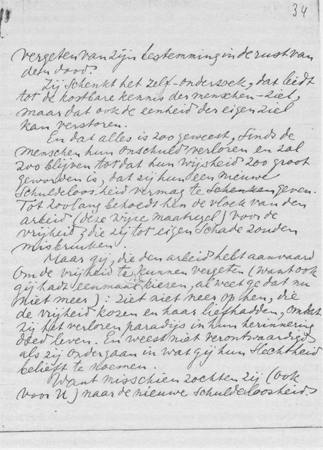 34
vergeten van zijn bestemming in de rust van
den dood?
Zij schenkt het zelf-onderzoek, dat leidt
tot de kostbare kennis der menschen-ziel,
maar dat ook de eenheid der eigen ziel
kan verstoren.
En dat alles is zoo geweest, sinds de
menschen hun onschuld verloren en zal
zoo blijven totdat hun wijsheid zoo groot
geworden is, dat zij hun een nieuwe
schuldeloosheid vermag te schenken geven.
Tot zoolang behoedt hen de vloek van den
arbeid (deze wijze maatregel) voor de
vrijheid, die zij tot eigen schade zouden
misbruiken.
Maar gij, die den arbeid hebt aanvaard
om de vrijheid te kunnen vergeten (want ook
gij hadt eenmaal te kiezen, al weet ge dat nu
niet meer): ziet niet neer op hen, die
de vrijheid kozen en haar liefhadden, omdat
zij het verloren paradijs in hun herinnering
deed leven. En weest niet verontwaardigd
als zij ondergaan in wat gij hun slechtheid
belieft te noemen.
Want misschien zochten zij (ook
voor U) naar de nieuwe schuldeloosheid.